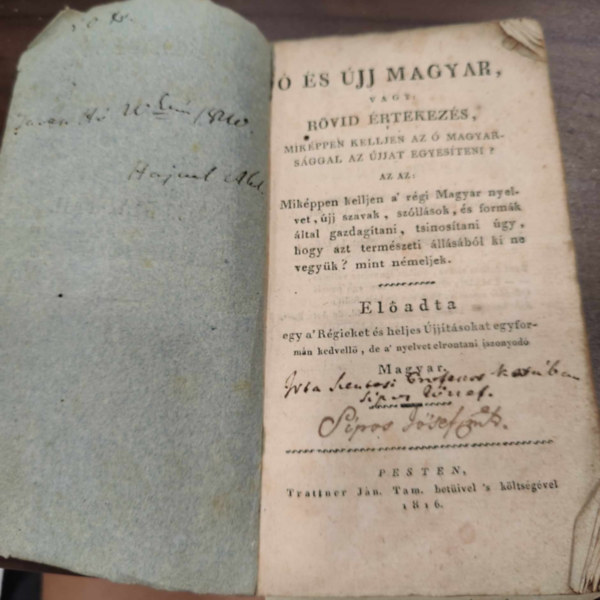 1820.
Ó ÉS ÚJJ MAGYAR,
VAGY:
RÖVID ÉRTEKEZÉS,
MIKÉPPEN KELLJEN AZ Ó MAGYAR-
SÁGGAL AZ ÚJJAT EGYESÍTENI?
AZ AZ:
Miképpen kelljen a' régi Magyar nyel-
vet, újj szavak, szóllások, és formák
által gazdagítani, tsinosítani úgy,
hogy azt természeti állásából ki ne
vegyük? mint némeljek.
Előadta
egy a' Régieket és heljes Újjításokat egyfor-
mán kedvellő, de a' nyelvet elrontani iszonyodó
Magyar.
Irta Szentesi Professor
Sipos József.
Sipos József
PESTEN,
Trattner Ján. Tam. betüivel 's költségével
1816.